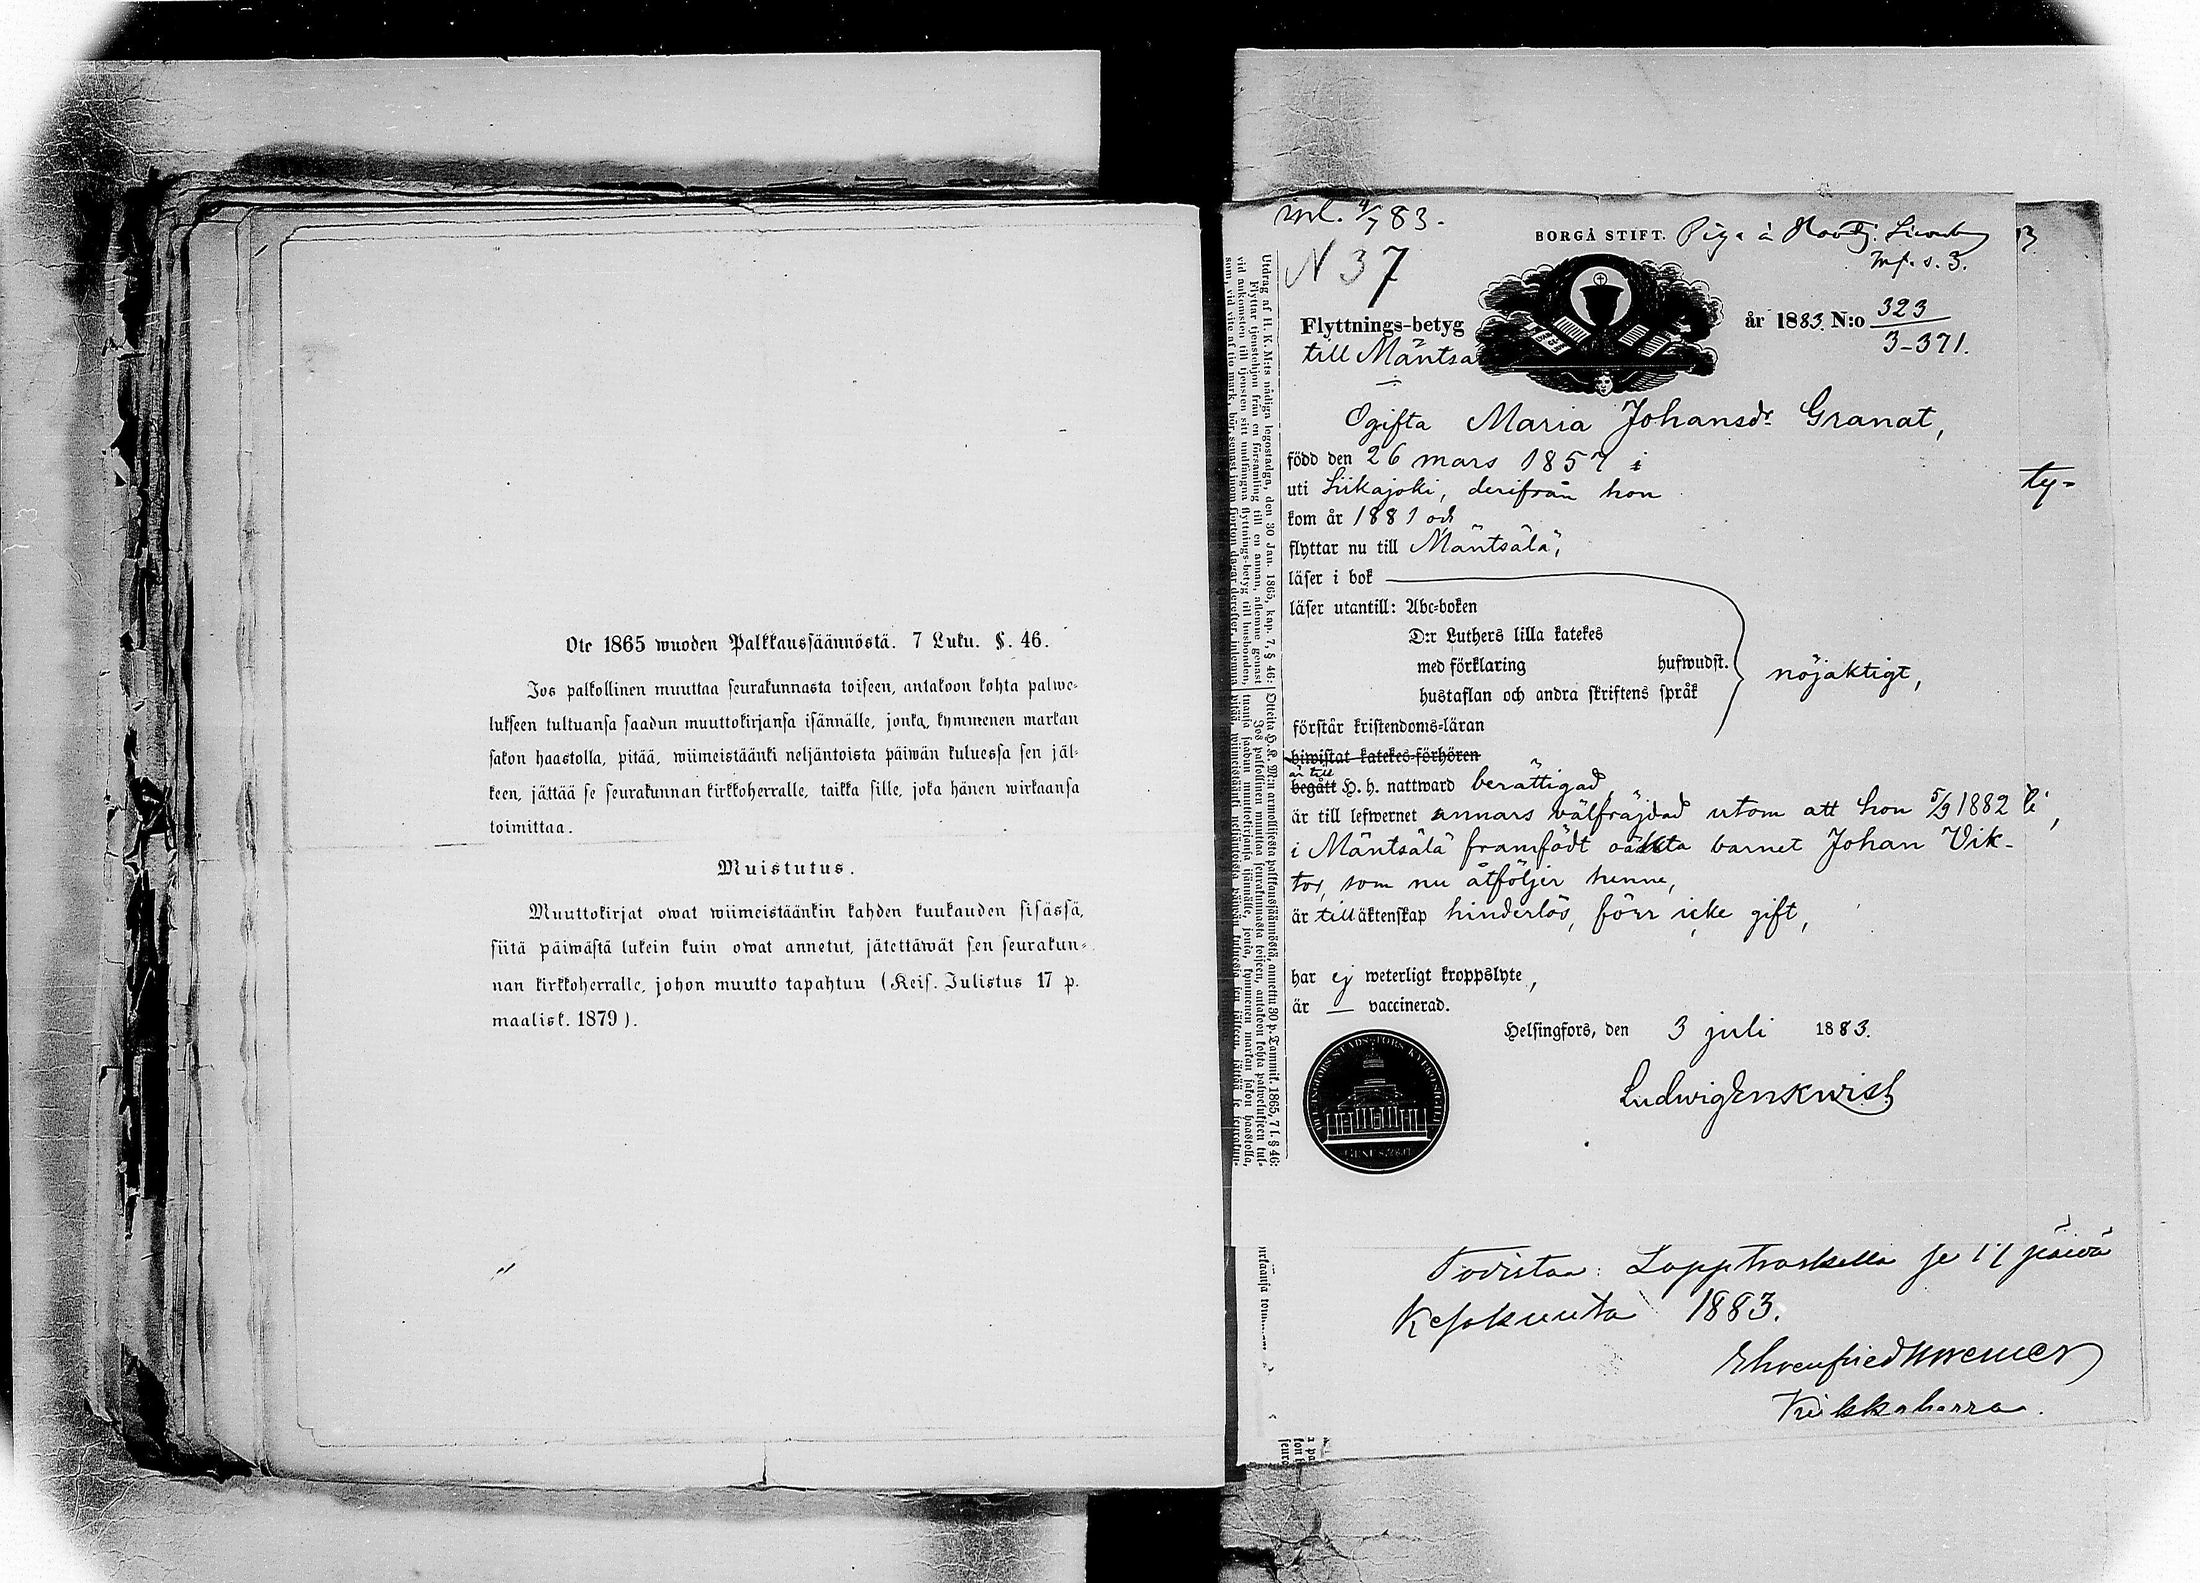 Ote 1865 wuoden Palkkaussäännöstä. 7 Luku. §. 46.
Jos palkollinen muuttaa seurakunnasta toiseen, antakoon kohta palwe-
lukseen tultuansa saadun muuttokirjansa isännälle, jonka, kymmenen markan
sakon haastolla, pitää, wiimeistäänki neljäntoista päiwän kuluessa sen jäl-
keen, jättää se seurakunnan kirkkoherralle, taikka sille, joka hänen wirkaansa
toimittaa.
Muistutus.
Muuttokirjat owat wiimeistäänkin kahden kuukauden sisässä,
siitä päiwästä lukein kuin owat annetut, jätettäwät sen seurakun-
nan kirkkoherralle, johon muutto tapahtuu (Keis. Julistus 17 p.
maalisk. 1879).
inl. 4/7 83.
N 37
BORGÅ STIFT. Piga
s. 3.
Flyttnings-betyg
till Mäntsä
år 1883. N:o 323
3-371.
Ogifta Maria Johansdr Granat,
född den 26 mars 1857 i
uti Siikajoki, derifrån hon
kom år 1881 och
flyttar nu till Mäntsälä,
läser i bok
läser utantill: Abc-boken
D:r Luthers lilla katekes
med förklaring hufwudst.
hustaflan och andra skriftens språk
nöjaktigt,
förstår kristendoms-läran
biwistat katekes-förhören
är till
begått H. h. nattward berättigad,
är till lefwernet annars välfräjdad utom att hon 5/9 1882
i Mäntsälä framfödt oäkta barnet Johan Vik-
tor, som nu åtföljer henne,
är till äktenskap hinderlös, förr icke gift,
har ej weterligt kroppslyte,
är — vaccinerad.
Helsingfors, den 3 juli 1883.
Ludwig Enkwist
ty-
Utdrag af H. K. M:ts nådiga legostadga, den 30 Jan. 1865, kap. 7, § 46:
Flyttar tjenstehjon från en församling till en annan, aflemne genast
vid ankomsten till tjensten sitt undfångna flyttnings-betyg till husbonden,
Otteita H. K. M:n armollisesta palkkaussäännöstä, annettu 30 p. Tammik. 1865, 7 l. § 46:
Jos palkollinen muuttaa seurakunnasta toiseen, antakoon kohta palwelukseen tul-
Todistaa: Lapptraskella se 17 päivä
Kesäkuuta 1883.
Ehrenfried
Kirkkoherra.